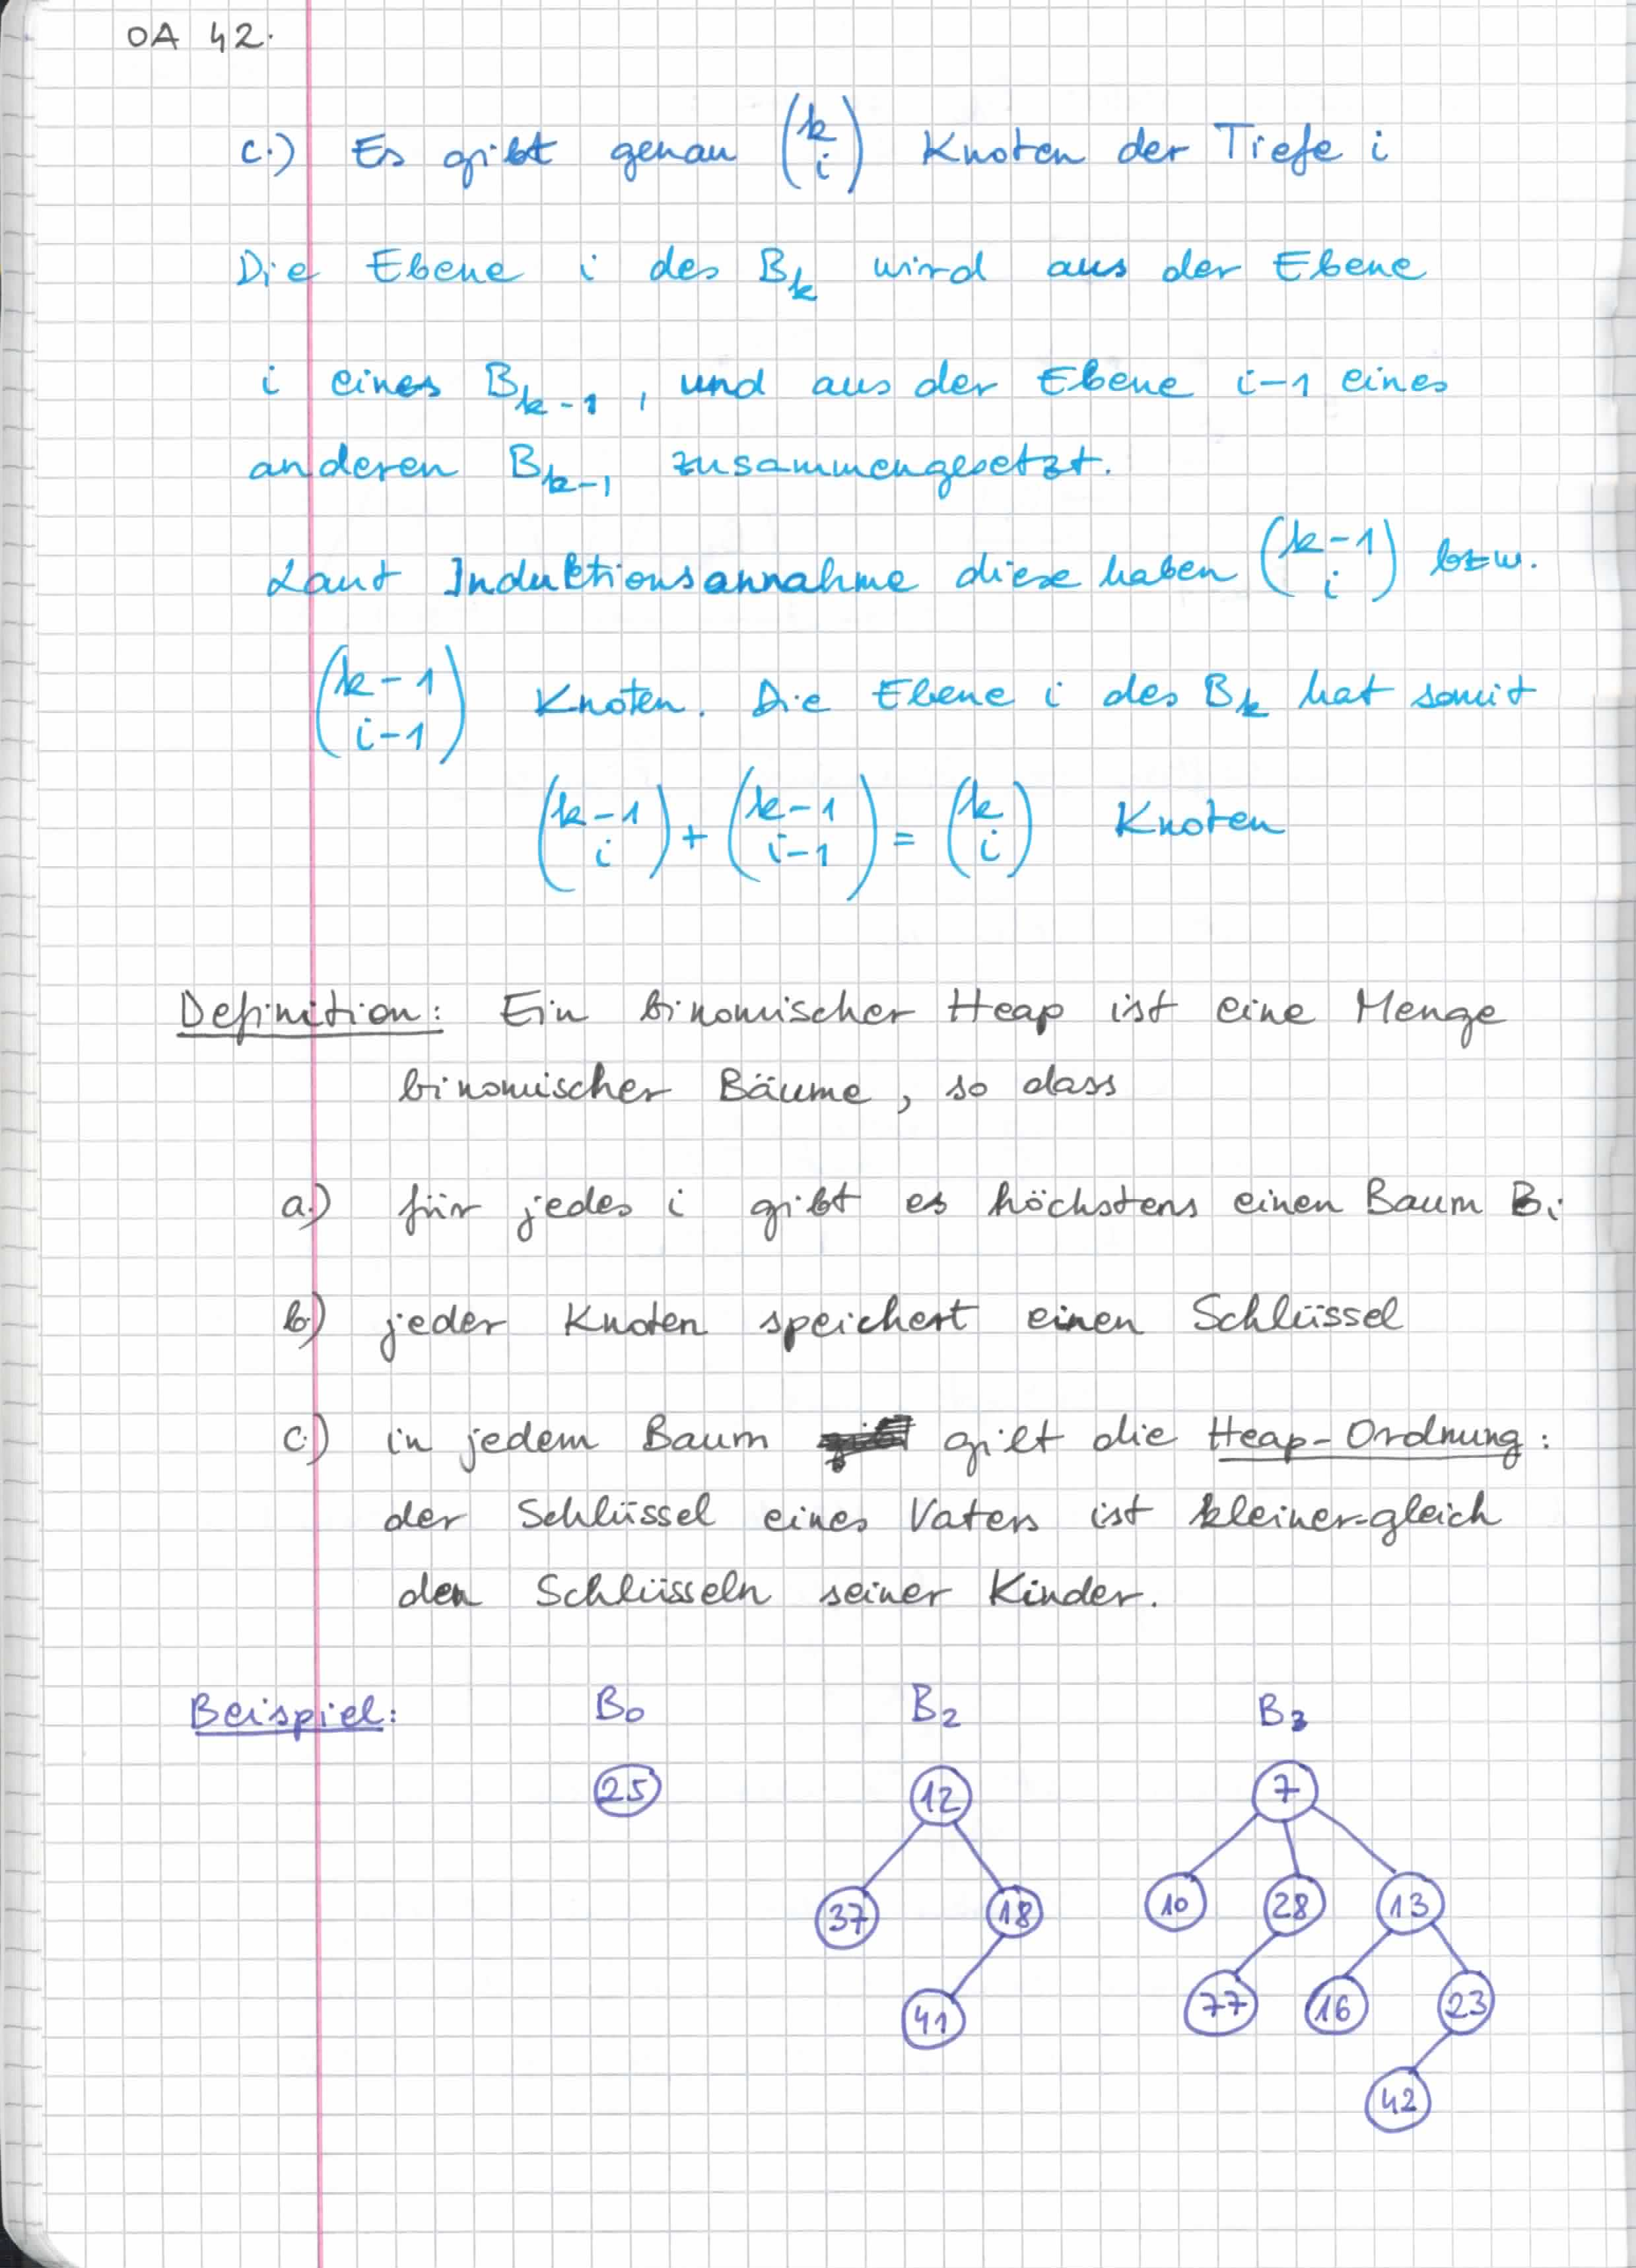 OA 42.
c.) Es gibt genau (k i) Knoten der Tiefe i
Die Ebene i des B_k wird aus der Ebene
i eines B_{k-1}, und aus der Ebene i-1 eines
anderen B_{k-1} zusammengesetzt.
Laut Induktionsannahme diese haben (k-1 i) bzw.
(k-1 i-1) Knoten. Die Ebene i des B_k hat somit
(k-1 i) + (k-1 i-1) = (k i) Knoten
Definition: Ein binomischer Heap ist eine Menge
binomischer Bäume, so dass
a.) für jedes i gibt es höchstens einen Baum B_i
b.) jeder Knoten speichert einen Schlüssel
c.) in jedem Baum gilt die Heap-Ordnung:
der Schlüssel eines Vaters ist kleiner-gleich
den Schlüsseln seiner Kinder.
Beispiel: B_0 B_2 B_3
25 12 7
37 18 10 28 13
41 77 16 23
42